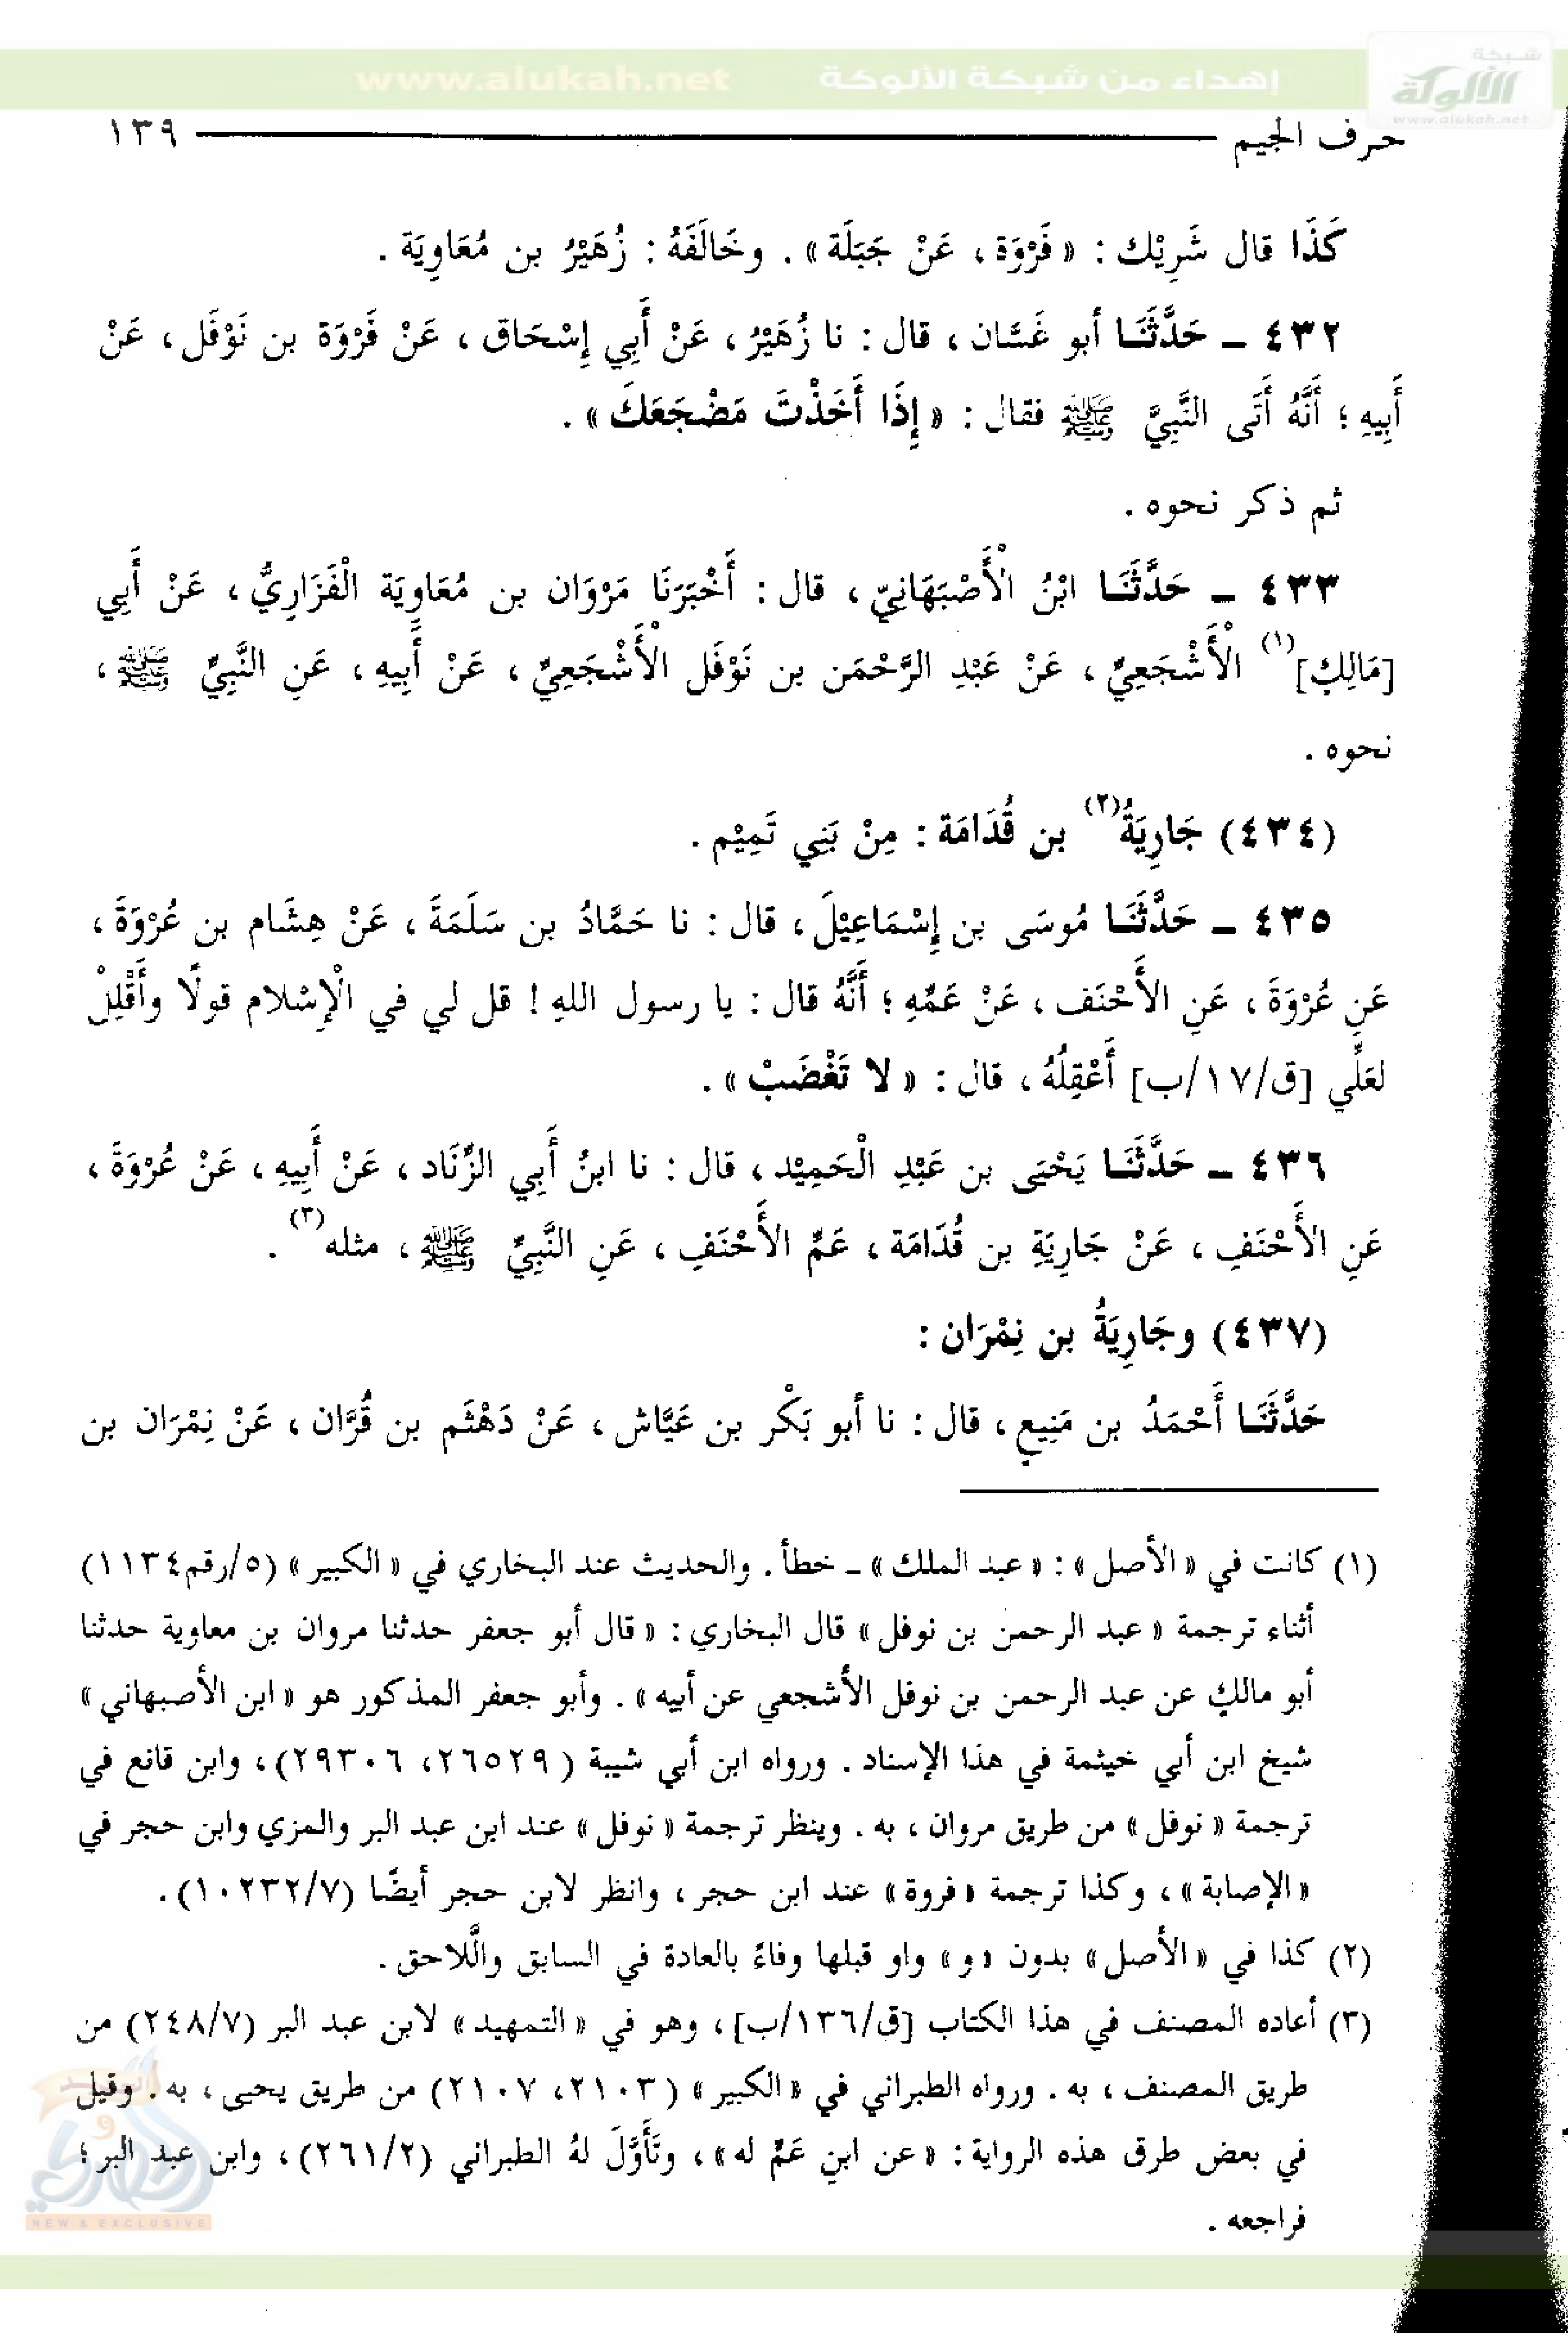 شبكة
الألوكة
www.alukah.net
إهداء من شبكة الألوكة www.alukah.net
حرف الجيم ١٣٩
كَذَا قال شَرِيْك : « فَرْوَة ، عَنْ جَبَلَة » . وخَالَفَهُ : زُهَيْرُ بن مُعَاوِيَة .
٤٣٢ ـ حَدَّثَنَا أبو غَسَّان ، قال : نا زُهَيْرُ ، عَنْ أَبِي إِسْحَاق ، عَنْ فَرْوَة بن نَوْفَل ، عَنْ
أَبِيهِ ؛ أَنَّهُ أَتَى النَّبِيَّ ﷺ فقال : « إِذَا أَخَذْتَ مَضْجَعَكَ » .
ثم ذكر نحوه .
٤٣٣ ـ حَدَّثَنَا ابْنُ الْأَصْبَهَانِيّ ، قال : أَخْبَرَنَا مَرْوَان بن مُعَاوِيَة الْفَزَارِيُّ ، عَنْ أَبِي
[مَالِكٍ](١) الْأَشْجَعِيِّ ، عَنْ عَبْدِ الرَّحْمَن بن نَوْفَل الْأَشْجَعِيِّ ، عَنْ أَبِيهِ ، عَنِ النَّبِيِّ ﷺ ،
نحوه .
(٤٣٤) جَارِيَةُ(٢) بن قُدَامَة : مِنْ بَنِي تَمِيْم .
٤٣٥ ـ حَدَّثَنَا مُوسَى بن إِسْمَاعِيْلَ ، قال : نا حَمَّادُ بن سَلَمَةَ ، عَنْ هِشَام بن عُرْوَةَ ،
عَنِ عُرْوَةَ ، عَنِ الأَحْنَف ، عَنْ عَمِّهِ ؛ أَنَّهُ قال : يا رسول اللهِ ! قل لي في الْإِسْلام قولًا وأَقْلِلْ
لعَلِّي [ق/١٧/ب] أَعْقِلُهُ ، قال : « لا تَغْضَبْ » .
٤٣٦ ـ حَدَّثَنَا يَحْيَى بن عَبْدِ الْحَمِيْد ، قال : نا ابنُ أَبِي الزِّنَاد ، عَنْ أَبِيهِ ، عَنْ عُرْوَةَ ،
عَنِ الأَحْنَفِ ، عَنْ جَارِيَةِ بن قُدَامَة ، عَمِّ الأَحْنَفِ ، عَنِ النَّبِيِّ ﷺ ، مثله(٣) .
(٤٣٧) وجَارِيَةُ بن نِمْرَان :
حَدَّثَنَا أَحْمَدُ بن مَنِيع ، قال : نا أبو بَكْر بن عَيَّاش ، عَنْ دَهْثَم بن قُرَّان ، عَنْ نِمْرَان بن
(١) كانت في « الأصل » : « عبد الملك » ـ خطأ . والحديث عند البخاري في « الكبير » (٥/رقم١١٣٤)
أثناء ترجمة « عبد الرحمن بن نوفل » قال البخاري : « قال أبو جعفر حدثنا مروان بن معاوية حدثنا
أبو مالكٍ عن عبد الرحمن بن نوفل الأشجعي عن أبيه » . وأبو جعفر المذكور هو « ابن الأصبهاني »
شيخ ابن أبي خيثمة في هذا الإسناد . ورواه ابن أبي شيبة ( ٢٦٥٢٩، ٢٩٣٠٦) ، وابن قانع في
ترجمة « نوفل » من طريق مروان ، به . وينظر ترجمة « نوفل » عند ابن عبد البر والمزي وابن حجر في
« الإصابة » ، وكذا ترجمة « فروة » عند ابن حجر ، وانظر لابن حجر أيضًا (١٠٢٣٢/٧) .
(٢) كذا في « الأصل » بدون « و » واو قبلها وفاءً بالعادة في السابق والَّلاحق .
(٣) أعاده المصنف في هذا الكتاب [ق/١٣٦/ب] ، وهو في « التمهيد » لابن عبد البر (٢٤٨/٧) من
طريق المصنف ، به . ورواه الطبراني في « الكبير » ( ٢١٠٣، ٢١٠٧) من طريق يحيى ، به . وقيل
في بعض طرق هذه الرواية : « عن ابنِ عَمٍّ له » ، وتَأَوَّلَ لهُ الطبراني (٢٦١/٢) ، وابن عبد البر ؛
فراجعه .
NEW & EXCLUSIVE